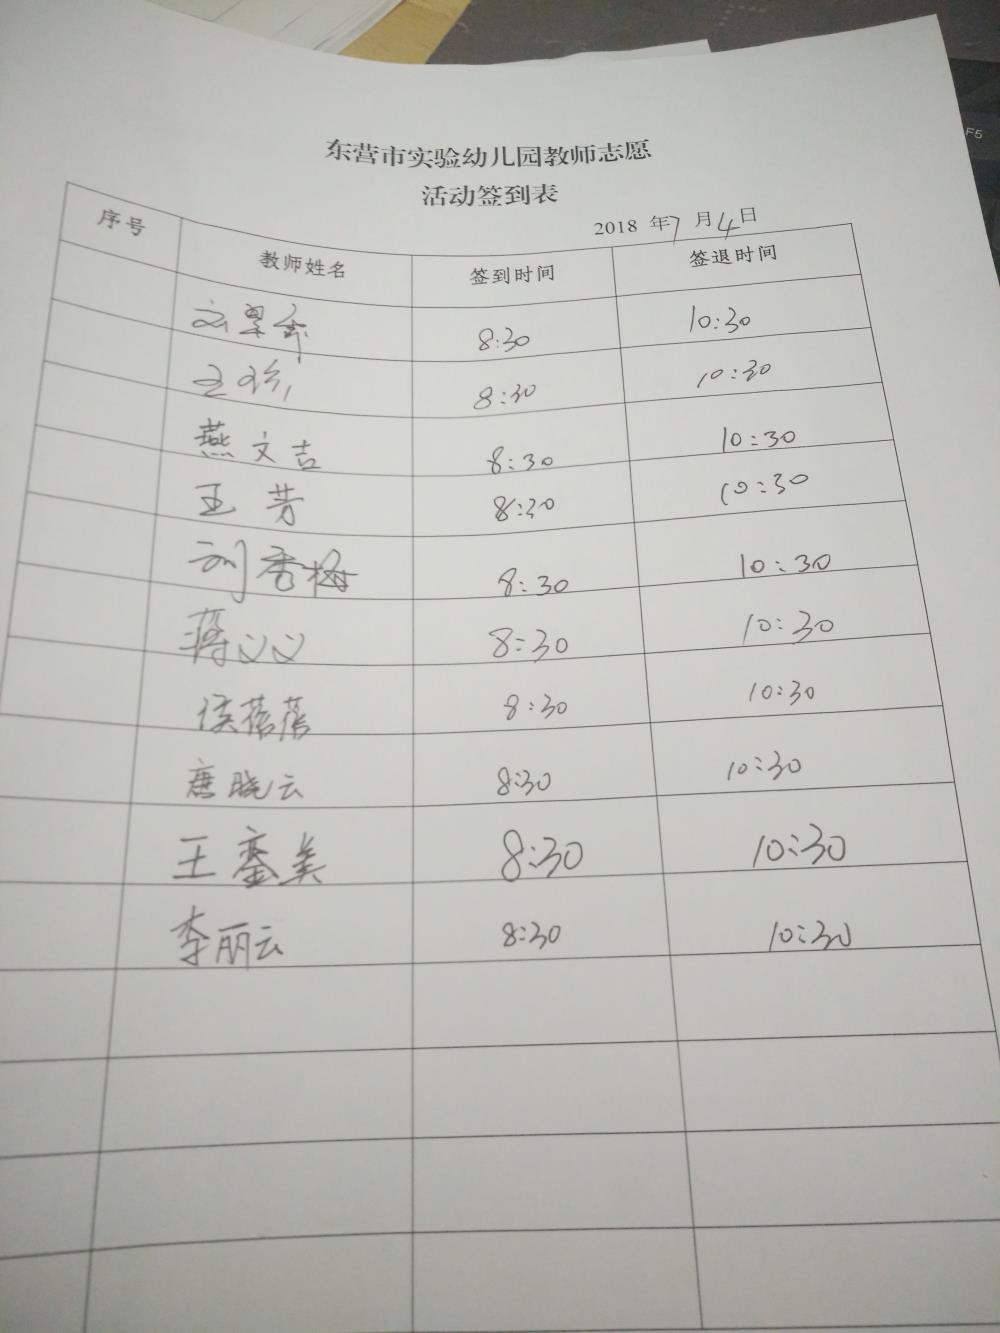 东营市实验幼儿园教师志愿
活动签到表
2018 年 7 月 4 日
序号 教师姓名 签到时间 签退时间
8:30 10:30
8:30 10:30
燕文吉 8:30 10:30
王芳 8:30 10:30
刘秀梅 8:30 10:30
蒋义义 8:30 10:30
侯蓓蓓 8:30 10:30
唐晓云 8:30 10:30
王銮美 8:30 10:30
李丽云 8:30 10:30
F5